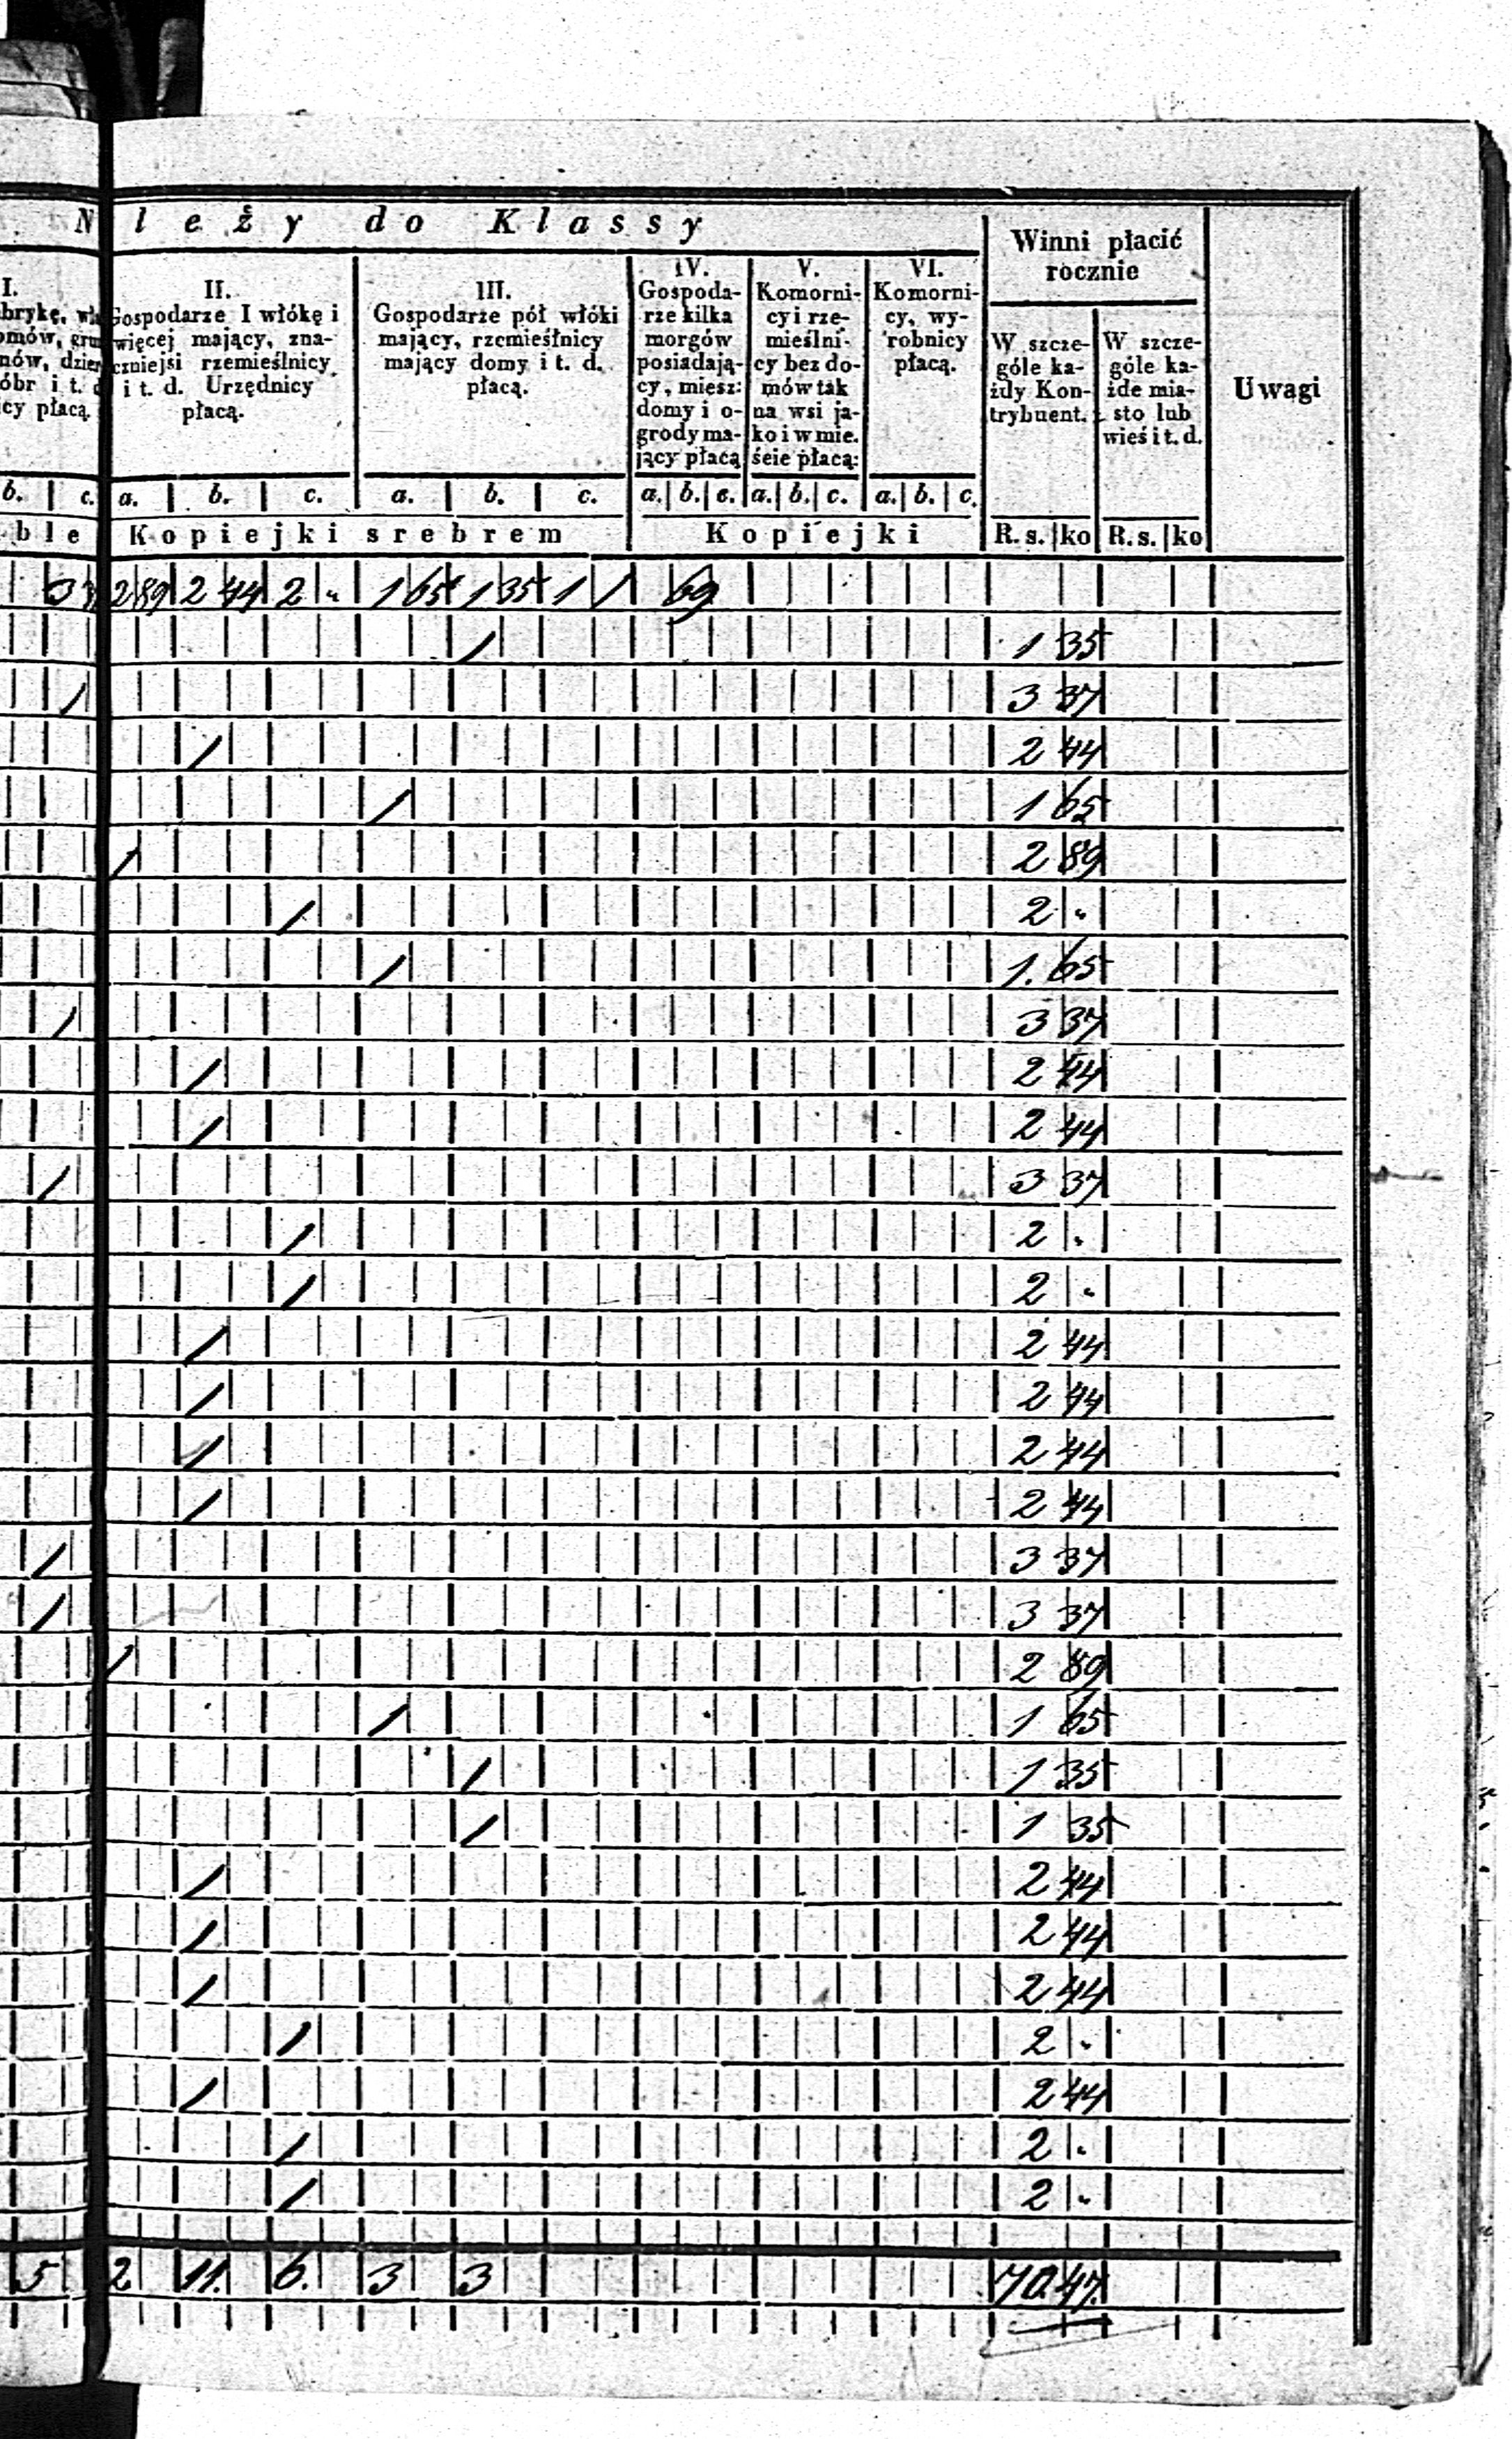 N leży do Klassy
I.
brykę, wła
omów, gru
nów, dzier
óbr i t. d
cy płacą.
II.
Gospodarze I włókę i
więcej mający, zna-
czniejsi rzemieślnicy
i t. d. Urzędnicy
płacą.
III.
Gospodarze pół włóki
mający, rzemieślnicy
mający domy i t. d.
płacą.
IV.
Gospoda-
rze kilka
morgów
posiadają-
cy, miesz:
domy i o-
grody ma-
jący płacą
V.
Komorni-
cy i rze-
mieślni-
cy bez do-
mów tak
na wsi ja-
ko i w mie.
ście płacą:
VI.
Komorni-
cy, wy-
robnicy
płacą.
Winni płacić
rocznie
W szcze-
góle ka-
żdy Kon-
trybuent.
W szcze-
góle ka-
żde mia-
sto lub
wieś i t. d.
Uwagi
b. c. a. b. c. a. b. c. a. b. c. a. b. c. a. b. c.
ble Kopiejki srebrem Kopiejki R. s. ko R. s. ko
2 89 2 44 2 " 1 65 1 35 1 / 69
/ 1 35
/ 3 37
/ 2 44
/ 1 65
/ 2 89
/ 2 "
/ 1. 65
/ 3 37
/ 2 44
/ 2 44
/ 3 37
/ 2 "
/ 2 "
/ 2 44
/ 2 44
/ 2 44
/ 2 44
/ 3 37
/ 3 37
/ 2 89
/ 1 65
/ 1 35
/ 1 35
/ 2 44
/ 2 44
/ 2 44
/ 2 "
/ 2 44
/ 2 "
/ 2 "
5 2 11. 6. 3 3 70 47.